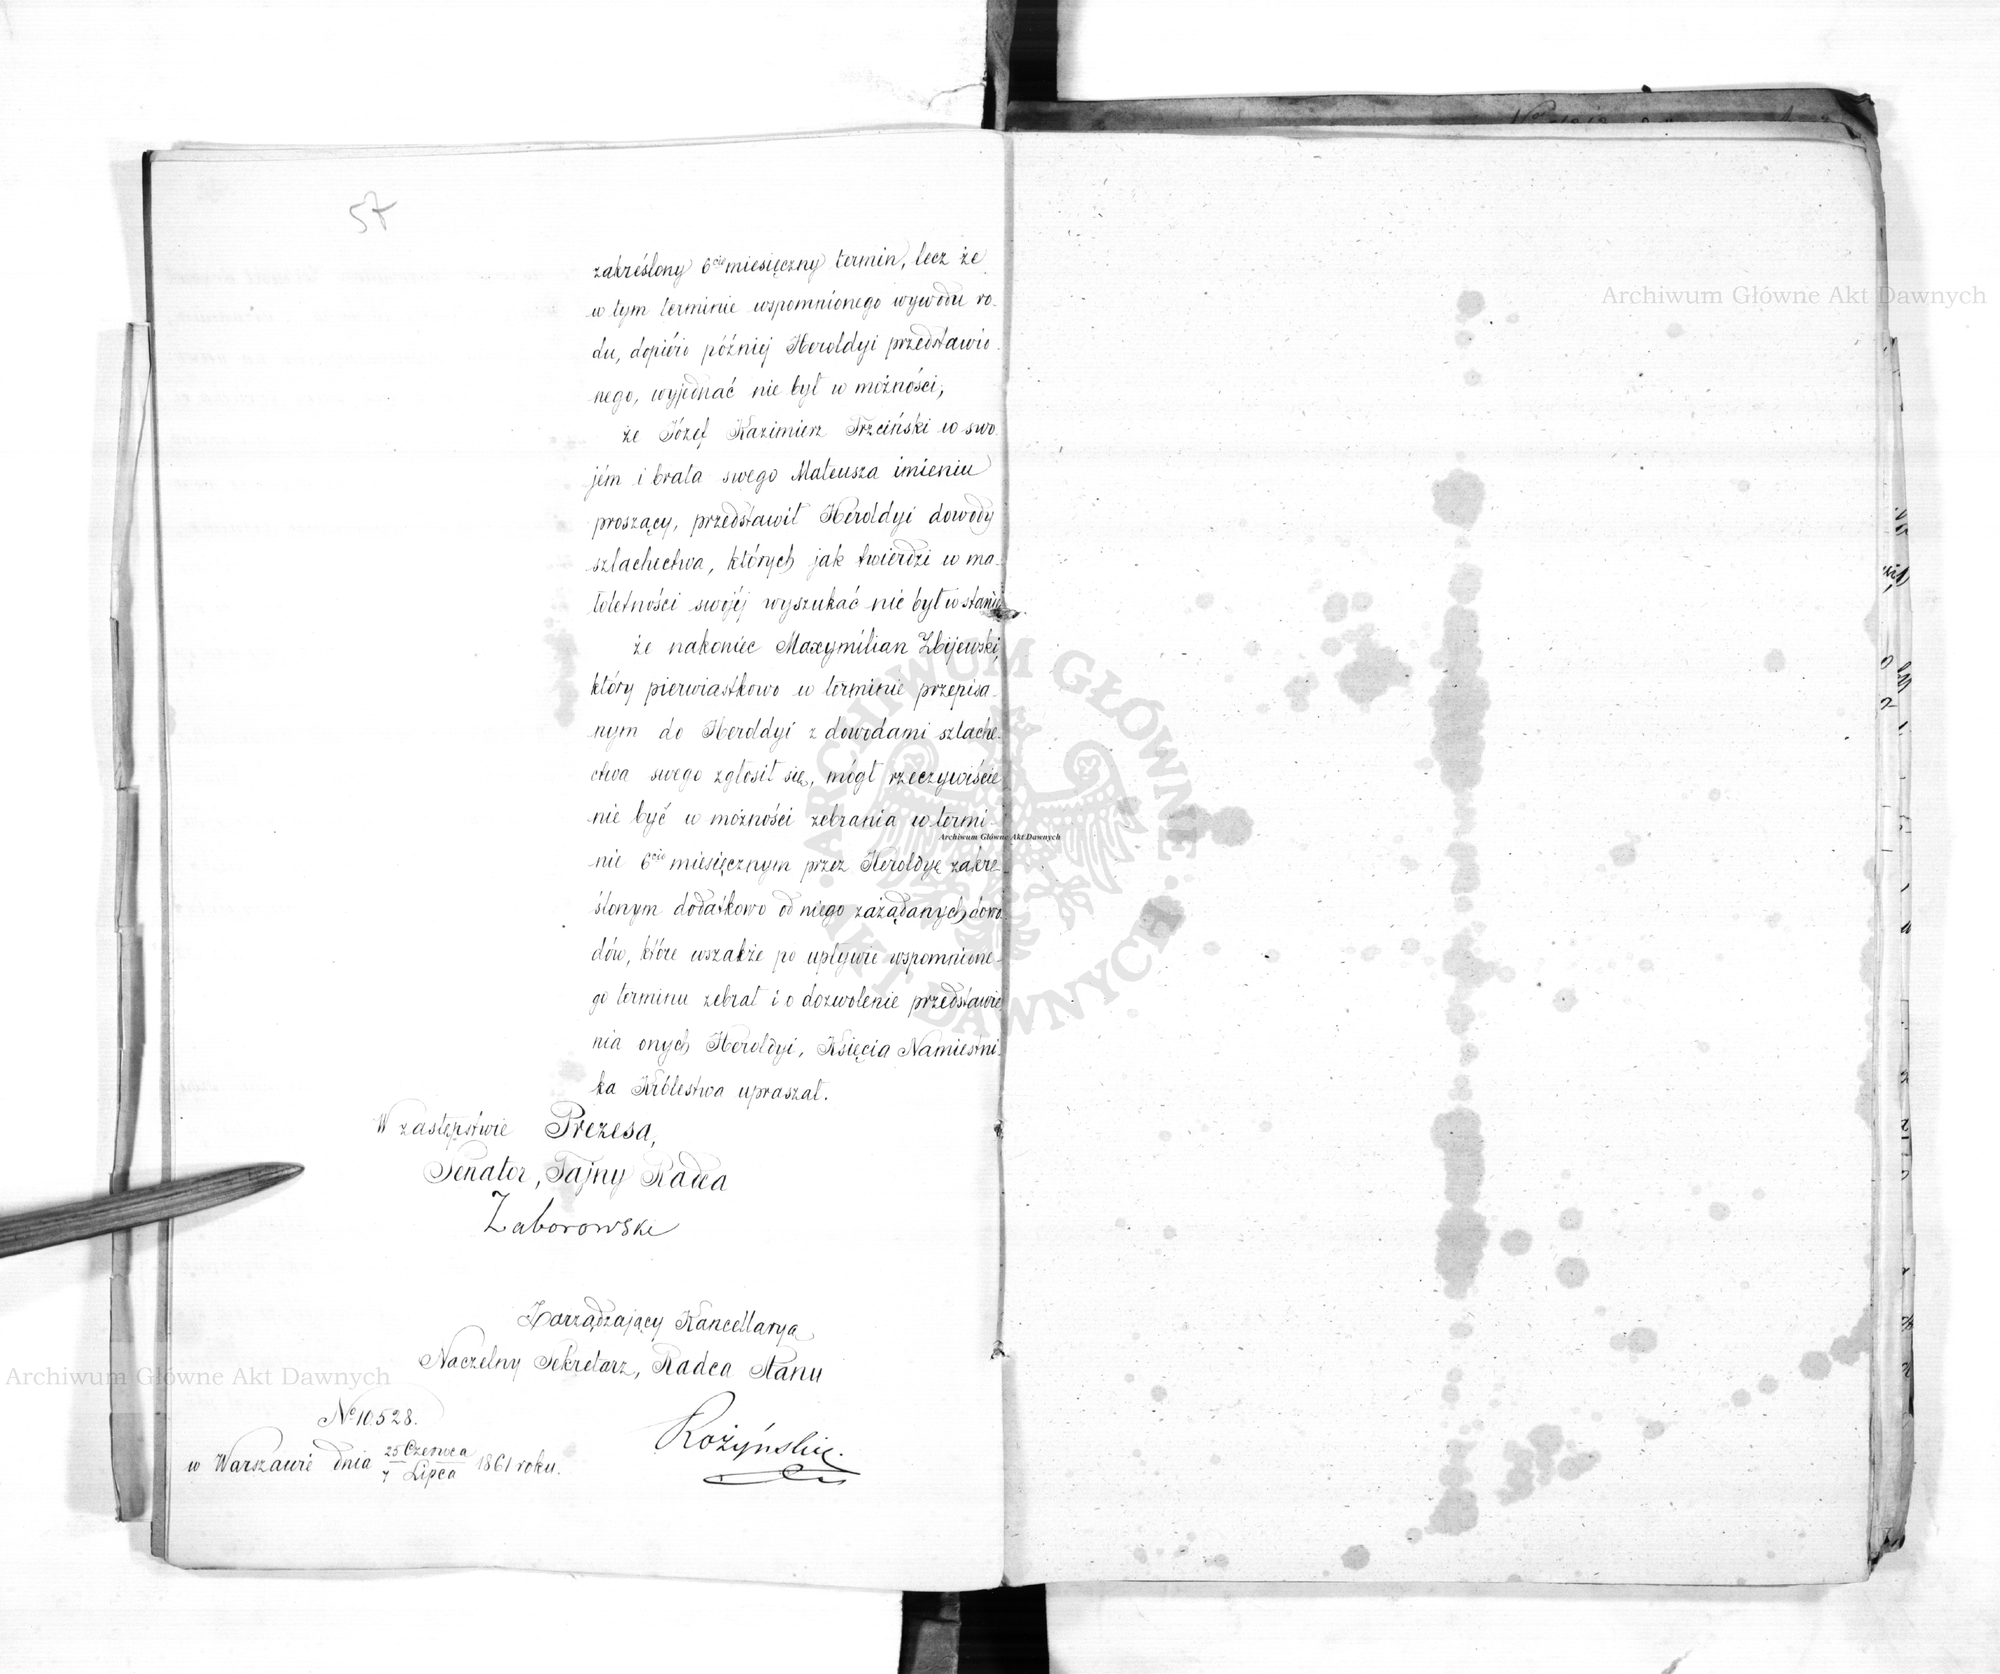 57
zakreślony 6cio miesięczny termin, lecz że
w tym terminie wspomnionego wywodu ro-
du, dopiéro późniéj Heroldyi przedstawio-
nego, wyjednać nie był w możności;
że Józef Kazimierz Trzciński w swo-
jém i brata swego Mateusza imieniu
proszący, przedstawił Heroldyi dowody
szlachectwa, których jak twierdzi w ma-
łoletności swojéj wyszukać nie był w stanie;
że nakoniec Maxymilian Zbijewski,
który pierwiastkowo w terminie przepisa-
nym do Heroldyi z dowodami szlache-
ctwa swego zgłosił się, mógł rzeczywiście
nie być w możności zebrania w termi-
nie 6cio miesięcznym przez Heroldyę zakre-
ślonym dodatkowo od niego zażądanych dowo-
dów, które wszakże po upływie wspomnione-
go terminu zebrał i o dozwolenie przedstawie-
nia onych Heroldyi, Księcia Namiestni-
ka Królestwa upraszał.
W zastępstwie Prezesa,
Senator, Tajny Radca
Zaborowski
Zarządzający Kancellaryą
Naczelny Sekretarz, Radca Stanu
Rożyński.
No 10528.
w Warszawie dnia 25 Czerwca / 7 Lipca 1861 roku.
Archiwum Główne Akt Dawnych
Archiwum Główne Akt Dawnych
Archiwum Główne Akt Dawnych
ARCHIWUM GŁÓWNE AKT DAWNYCH